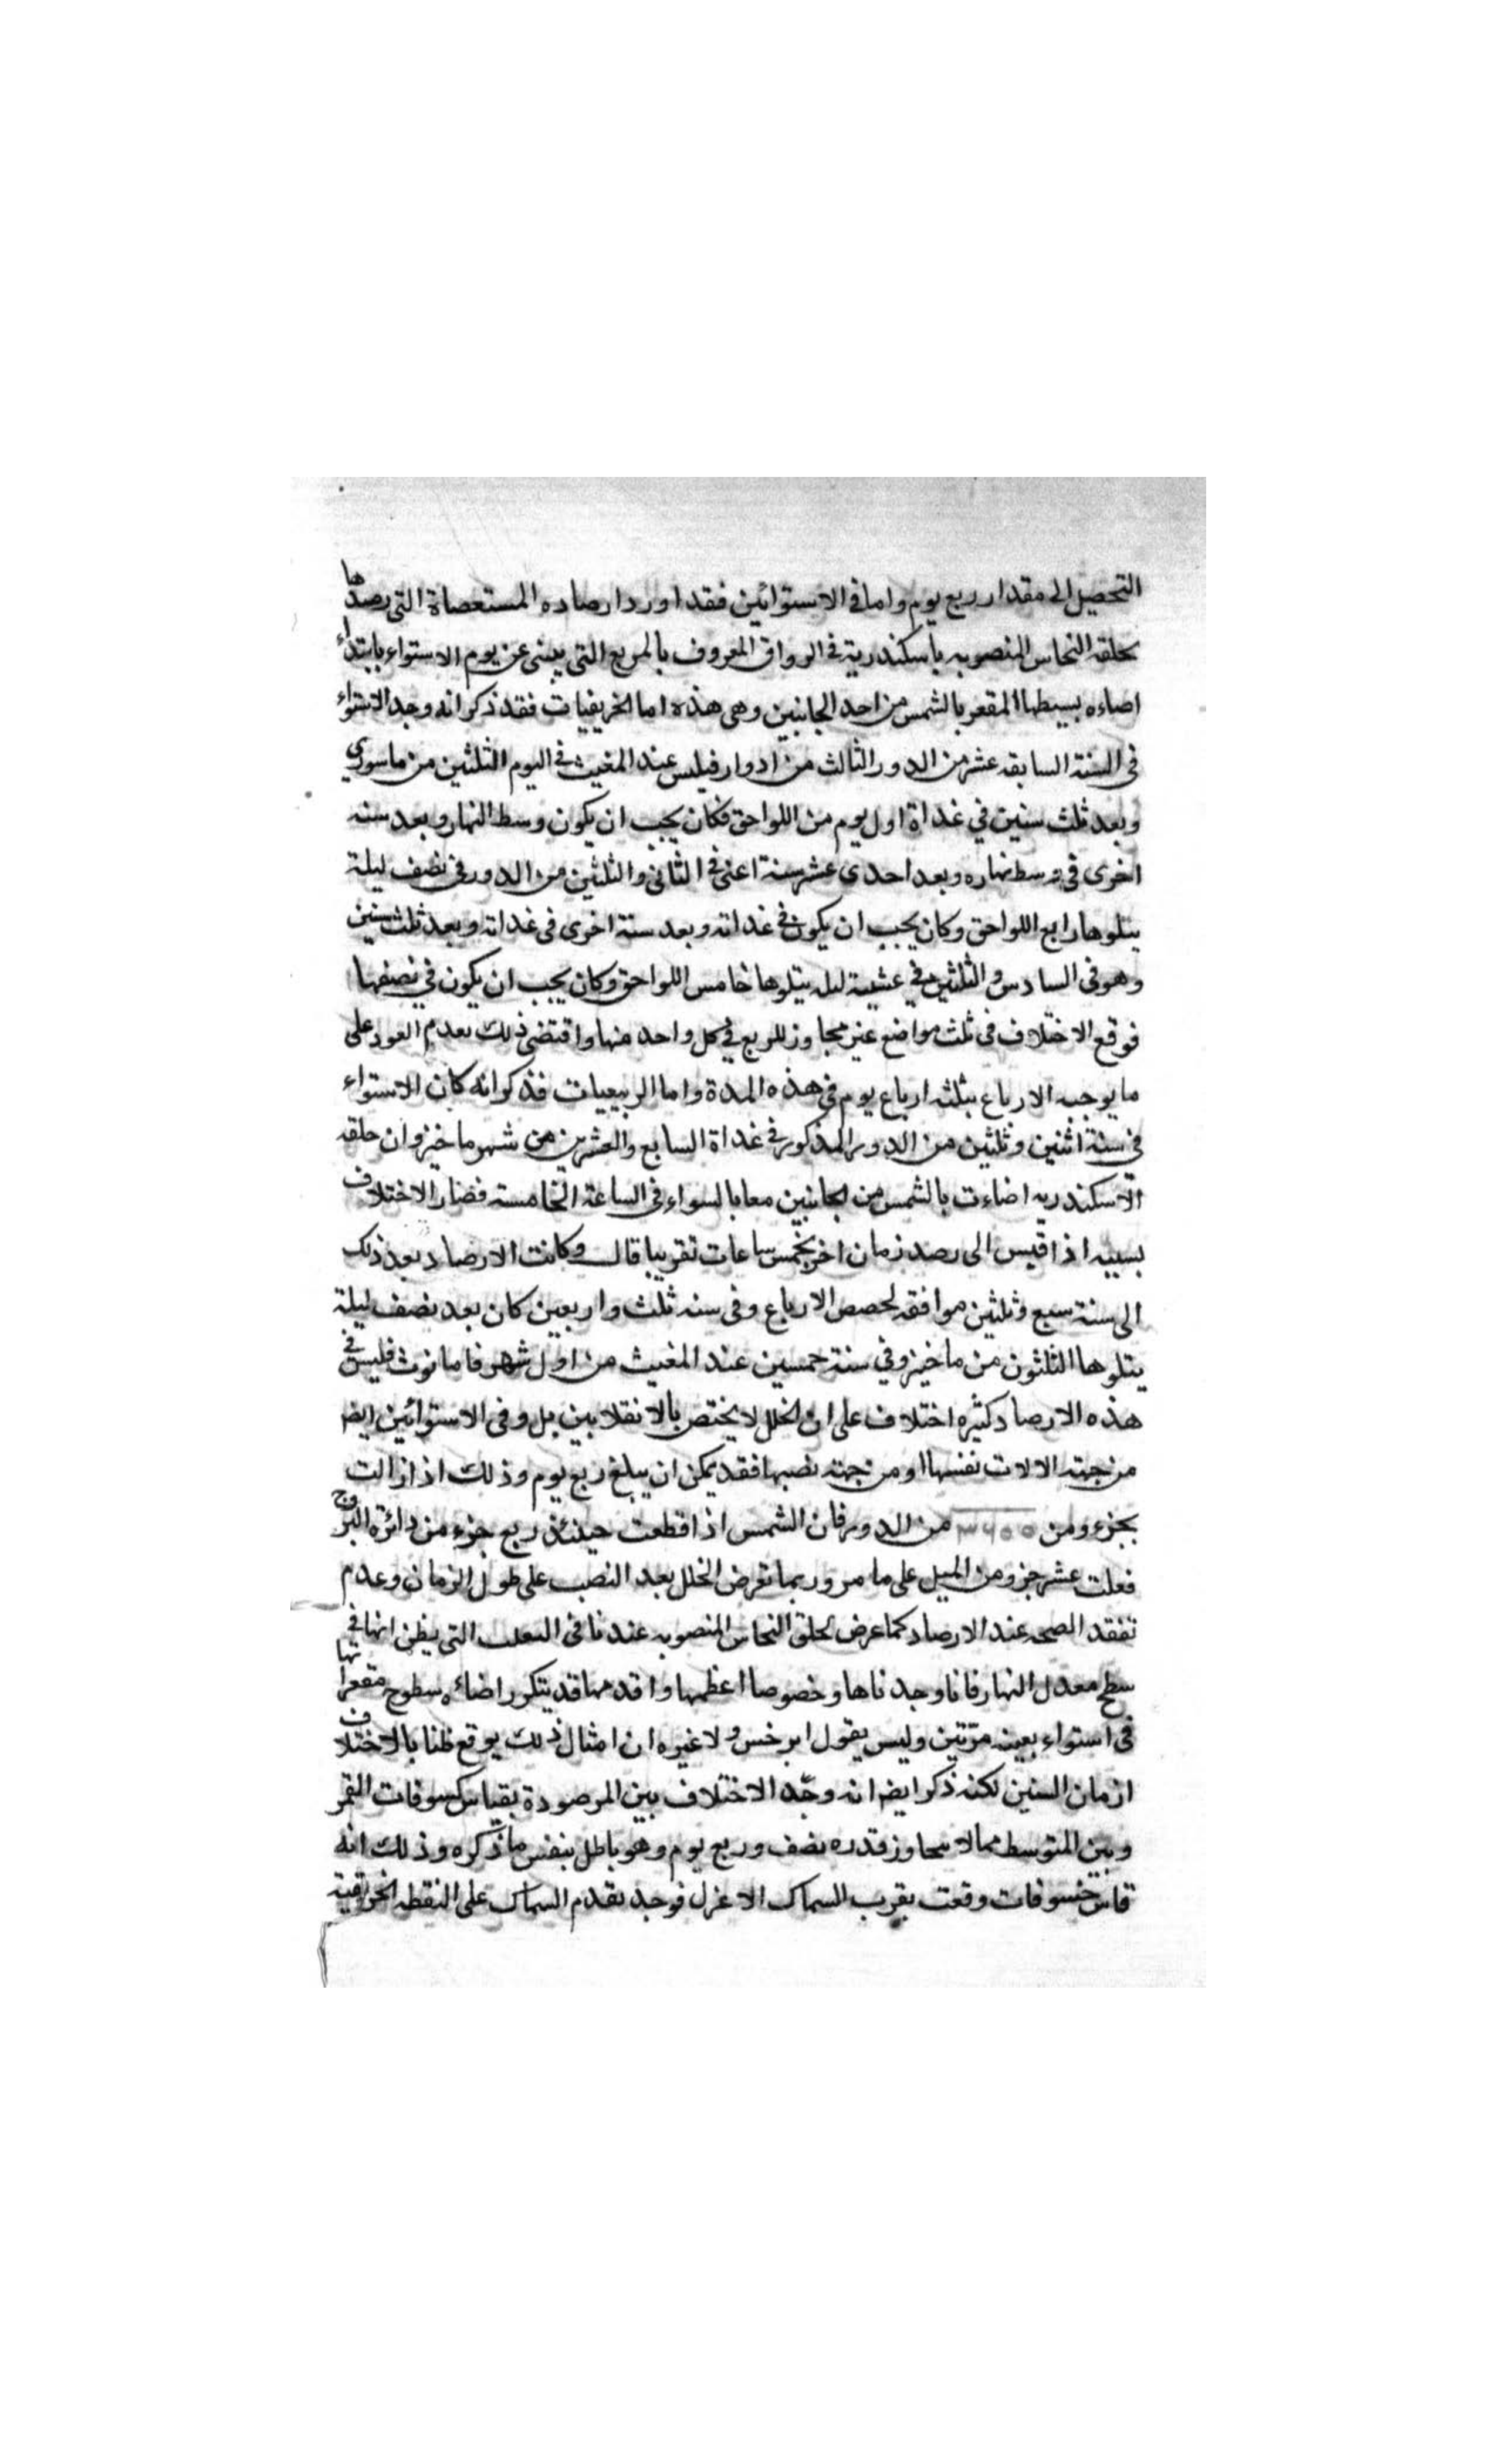 التحصيل الى مقدار ربع يوم واما في الاستوائين فقد اورد ارصاده المستعصاة التي رصدها
بحلقه النحاس المنصوبه باسكندرية في الرواق المعروف بالمربع التي ينبى عن يوم الاستواء بابتداء
اضاءه بسيطها المقعر بالشمس من احد الجانبين وهى هذه اما الخريفيات فقد ذكر انه وجد الاستواء
في السنة السابقه عشر من الدور الثالث من ادوار فيلبس عند المغيب في اليوم الثلثين من ماسورى
وبعد ثلث سنين في غداة اول يوم من اللواحق فكان يجب ان يكون وسط النهار وبعد سنه
اخرى في وسط نهاره وبعد احدى عشر سنة اعنى في الثاني والثلثين من الدور في نصف ليلة
يتلوها رابع اللواحق وكان يجب ان يكون في غداته وبعد سنة اخرى في غداته وبعد ثلث سنين
وهو في السادس والثلثين في عشية ليله يتلوها خامس اللواحق وكان يجب ان يكون في نصفها
فوقع الاختلاف في ثلث مواضع غير مجاوز للربع في كل واحد منها واقتضى ذلك بعدم العود على
ما يوجبه الارباع بثلثه ارباع يوم في هذه المدة واما الربيعيات فذكر انه كان الاستواء
في سنة اثنين وثلثين من الدور المذكور في غداة السابع والعشرين من شهر ماخيز وان حلقه
الاسكندريه اضاءت بالشمس من الجانبين معا بالسواء في الساعة الخامسة فصار الاختلاف
بسببه اذا قيس الى رصد زمان اخر بخمس ساعات تقريبا قال وكانت الارصاد بعد ذلك
الى سنة سبع وثلثين موافقه لحصص الارباع وفى سنه ثلث واربعين كان بعد نصف ليلة
يتلوها الثلثون من ماخيز وفي سنة خمسين عند المغيب من اول شهر فامانوث فليس في
هذه الارصاد كثيره اختلاف على ان الخلل لا يختص بالانقلابين بل وفى الاستوائين ايضا
من جهة الالات نفسها او من جهة نصبها فقد يمكن ان يبلغ ربع يوم وذلك اذا زالت
بجزء ومن ٣٦٠٠ من الدور فان الشمس اذا قطعت حينئذ ربع جزء من دائرة البروج
فعلت عشر جزو من الميل على ما مر وربما تعرض الخلل بعد النصب على طول الزمان وعدم
تفقد الصحه عند الارصاد كما عرض لحلق النحاس المنصوبه عندنا في التي يظن انها في
سطح معدل النهار فانا وجدناها وخصوصا اعظمها واقدمها قد يتكرر اضاءه سطوح مقعراتها
في استواء بعينه مرتين وليس يقول ابرخس ولا غيره ان امثال ذلك يوقع ظنا بالاختلاف
ازمان السنين لكنه ذكر ايضا انه وجد الاختلاف بين المرصودة بقياس كسوفات القمر
وبين المتوسط مما لا يتجاوز قدره نصف وربع يوم وهو باطل بنفس ما ذكره وذلك انه
قاس خسوفات وقعت بقرب السماك الاعزل فوجد تقدم السماك على النقطه الخريفية